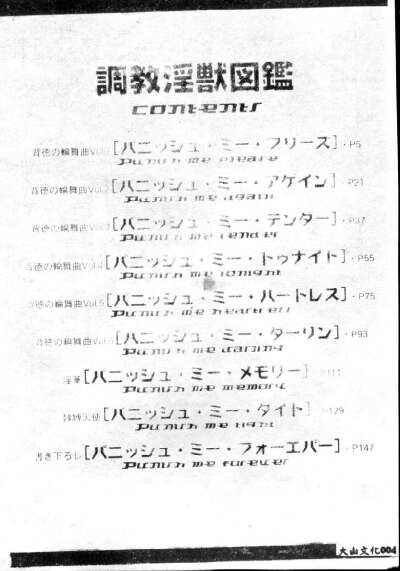 調教淫獣図鑑
contents
背徳の輪舞曲Vol.1[パニッシュ・ミー・プリーズ]・P5
Punish me please
背徳の輪舞曲Vol.2[パニッシュ・ミー・アゲイン]・P21
Punish me again
背徳の輪舞曲Vol.3[パニッシュ・ミー・テンダー]・P37
Punish me tender
背徳の輪舞曲Vol.4[パニッシュ・ミー・トゥナイト]・P55
Punish me tonight
背徳の輪舞曲Vol.5[パニッシュ・ミー・ハートレス]・P75
Punish me heartless
背徳の輪舞曲Vol.6[パニッシュ・ミー・ダーリン]・P93
Punish me darling
淫華[パニッシュ・ミー・メモリー]・P111
Punish me memory
天使[パニッシュ・ミー・タイト]・P129
Punish me tight
書き下ろし[パニッシュ・ミー・フォーエバー]・P147
Punish me forever
大山文化004